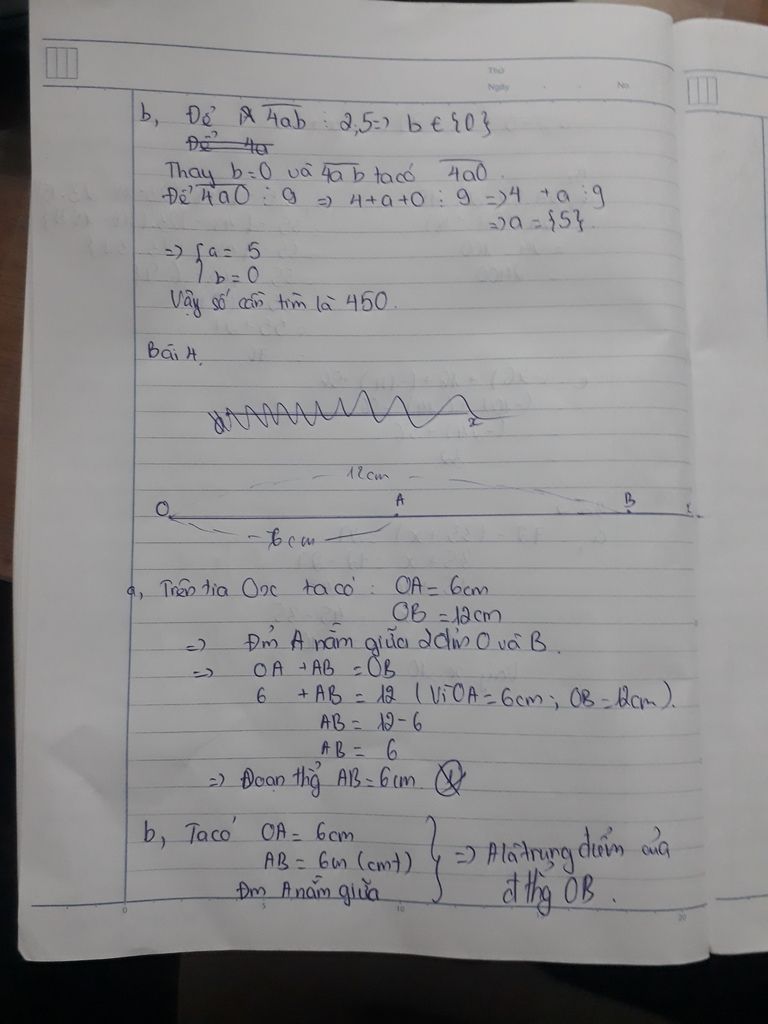 Thứ
Ngày No
b, Để 4ab ⋮ 2,5 => b ∈ {0}
Để 4a
Thay b=0 và 4ab ta có 4a0.
Để 4a0 ⋮ 9 => 4+a+0 ⋮ 9 => 4 + a ⋮ 9
=> a = {5}.
=> { a = 5
b = 0
Vậy số cần tìm là 450.
Bài 4.
x
12cm
O A B x
6cm
a, Trên tia Ox ta có : OA = 6cm
OB = 12cm
=> Đm A nằm giữa 2 đm O và B.
=> OA + AB = OB
6 + AB = 12 (Vì OA = 6cm ; OB = 12cm).
AB = 12-6
AB = 6
=> Đoạn thg AB = 6cm.
b, Ta có OA = 6cm
AB = 6cm (cmt) } => A là trung điểm của
Đm A nằm giữa đ thg OB.
0 5 10 20